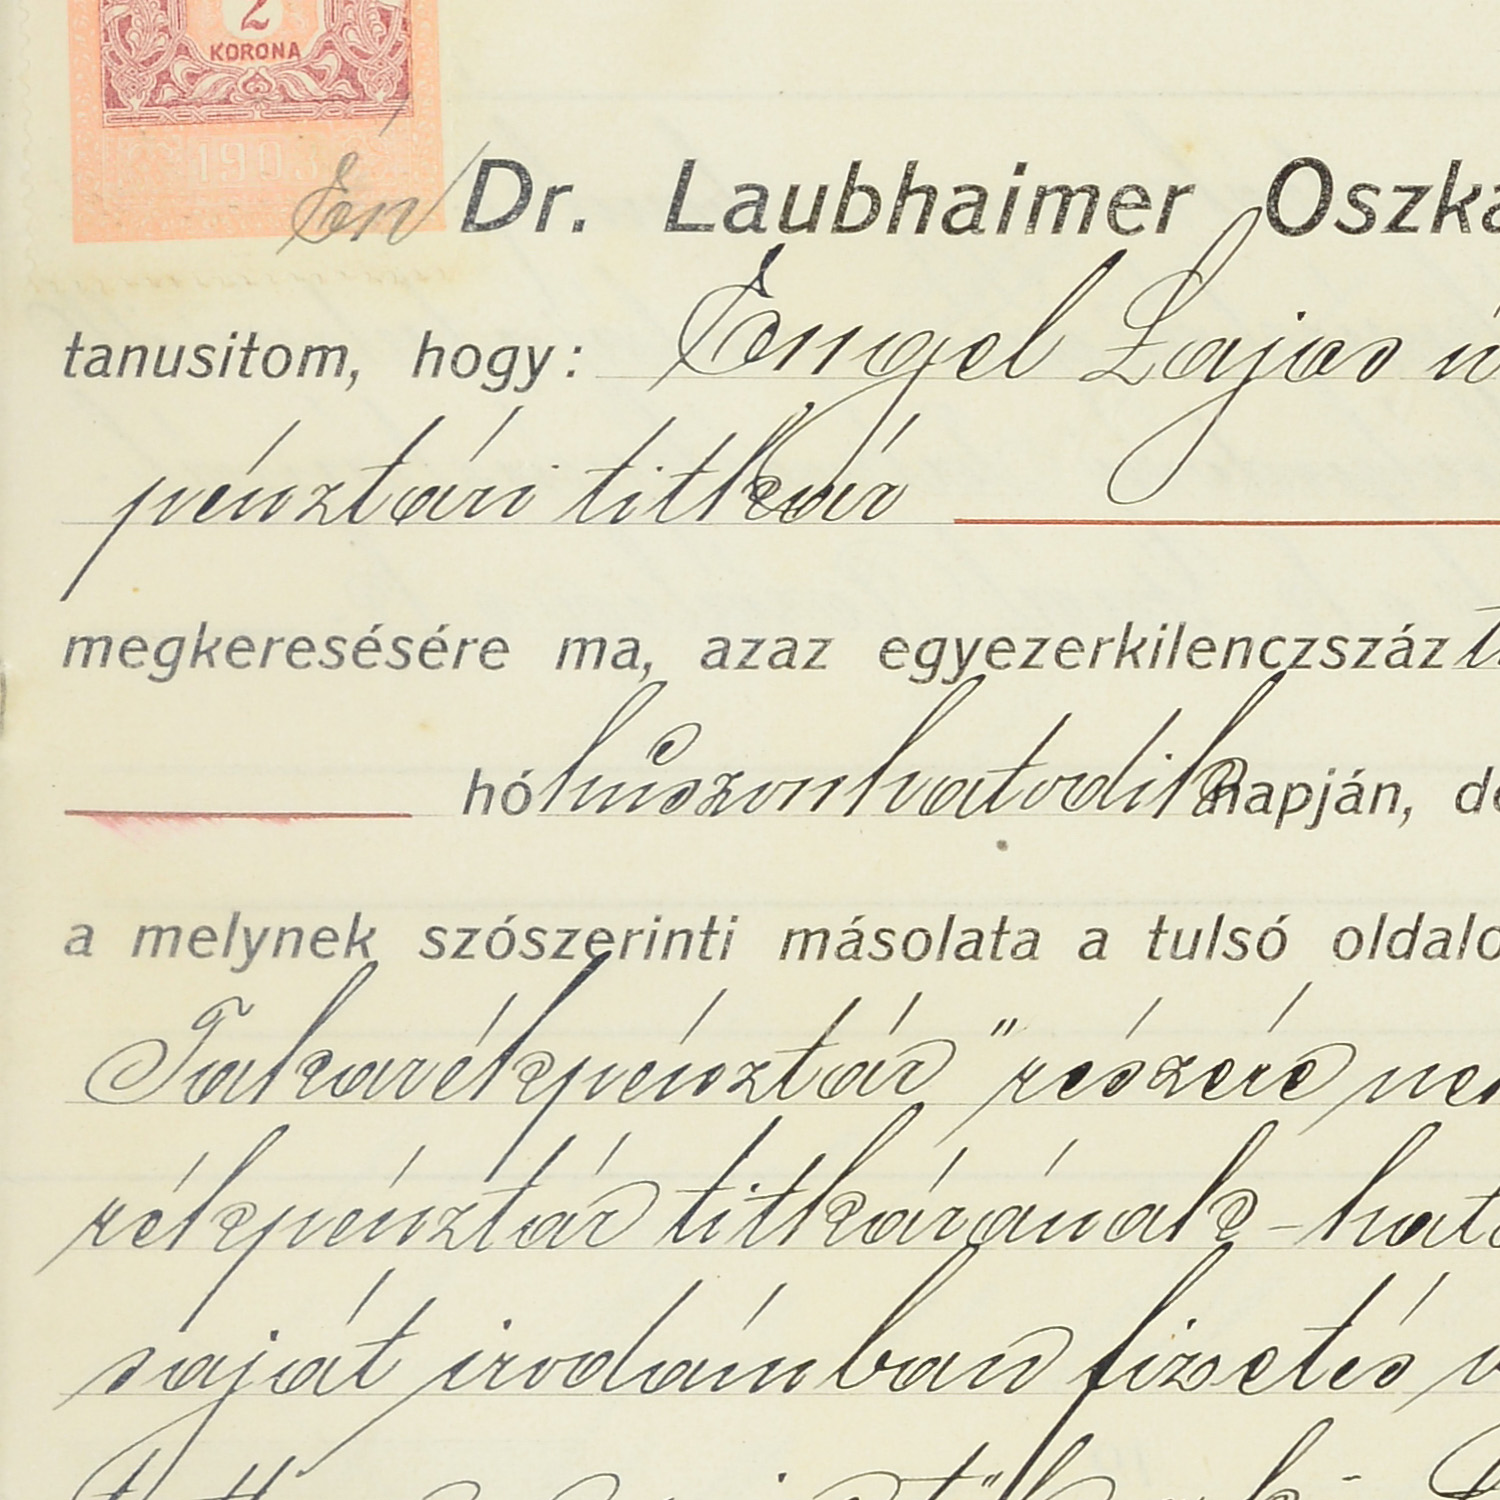 2
KORONA
1903
Én Dr. Laubhaimer Oszká
tanusitom, hogy: Engel Lajos
pénztári titkár
megkeresésére ma, azaz egyezerkilenczszáz
hó huszonhatodik napján, de
a melynek szószerinti másolata a tulsó oldalo
Takarékpénztár" részére
rékpénztár titkárának - hat
saját irodámban fizetés